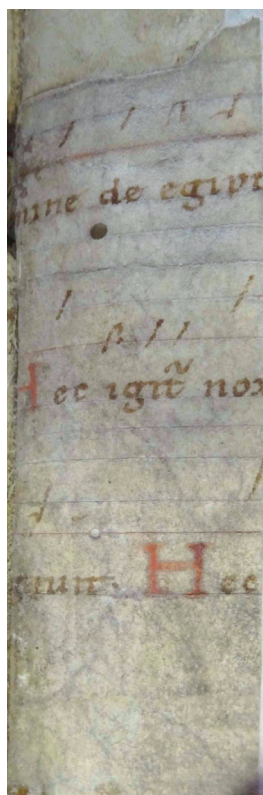 mine de egipt
Hec igit̃ nox
runt. Hec